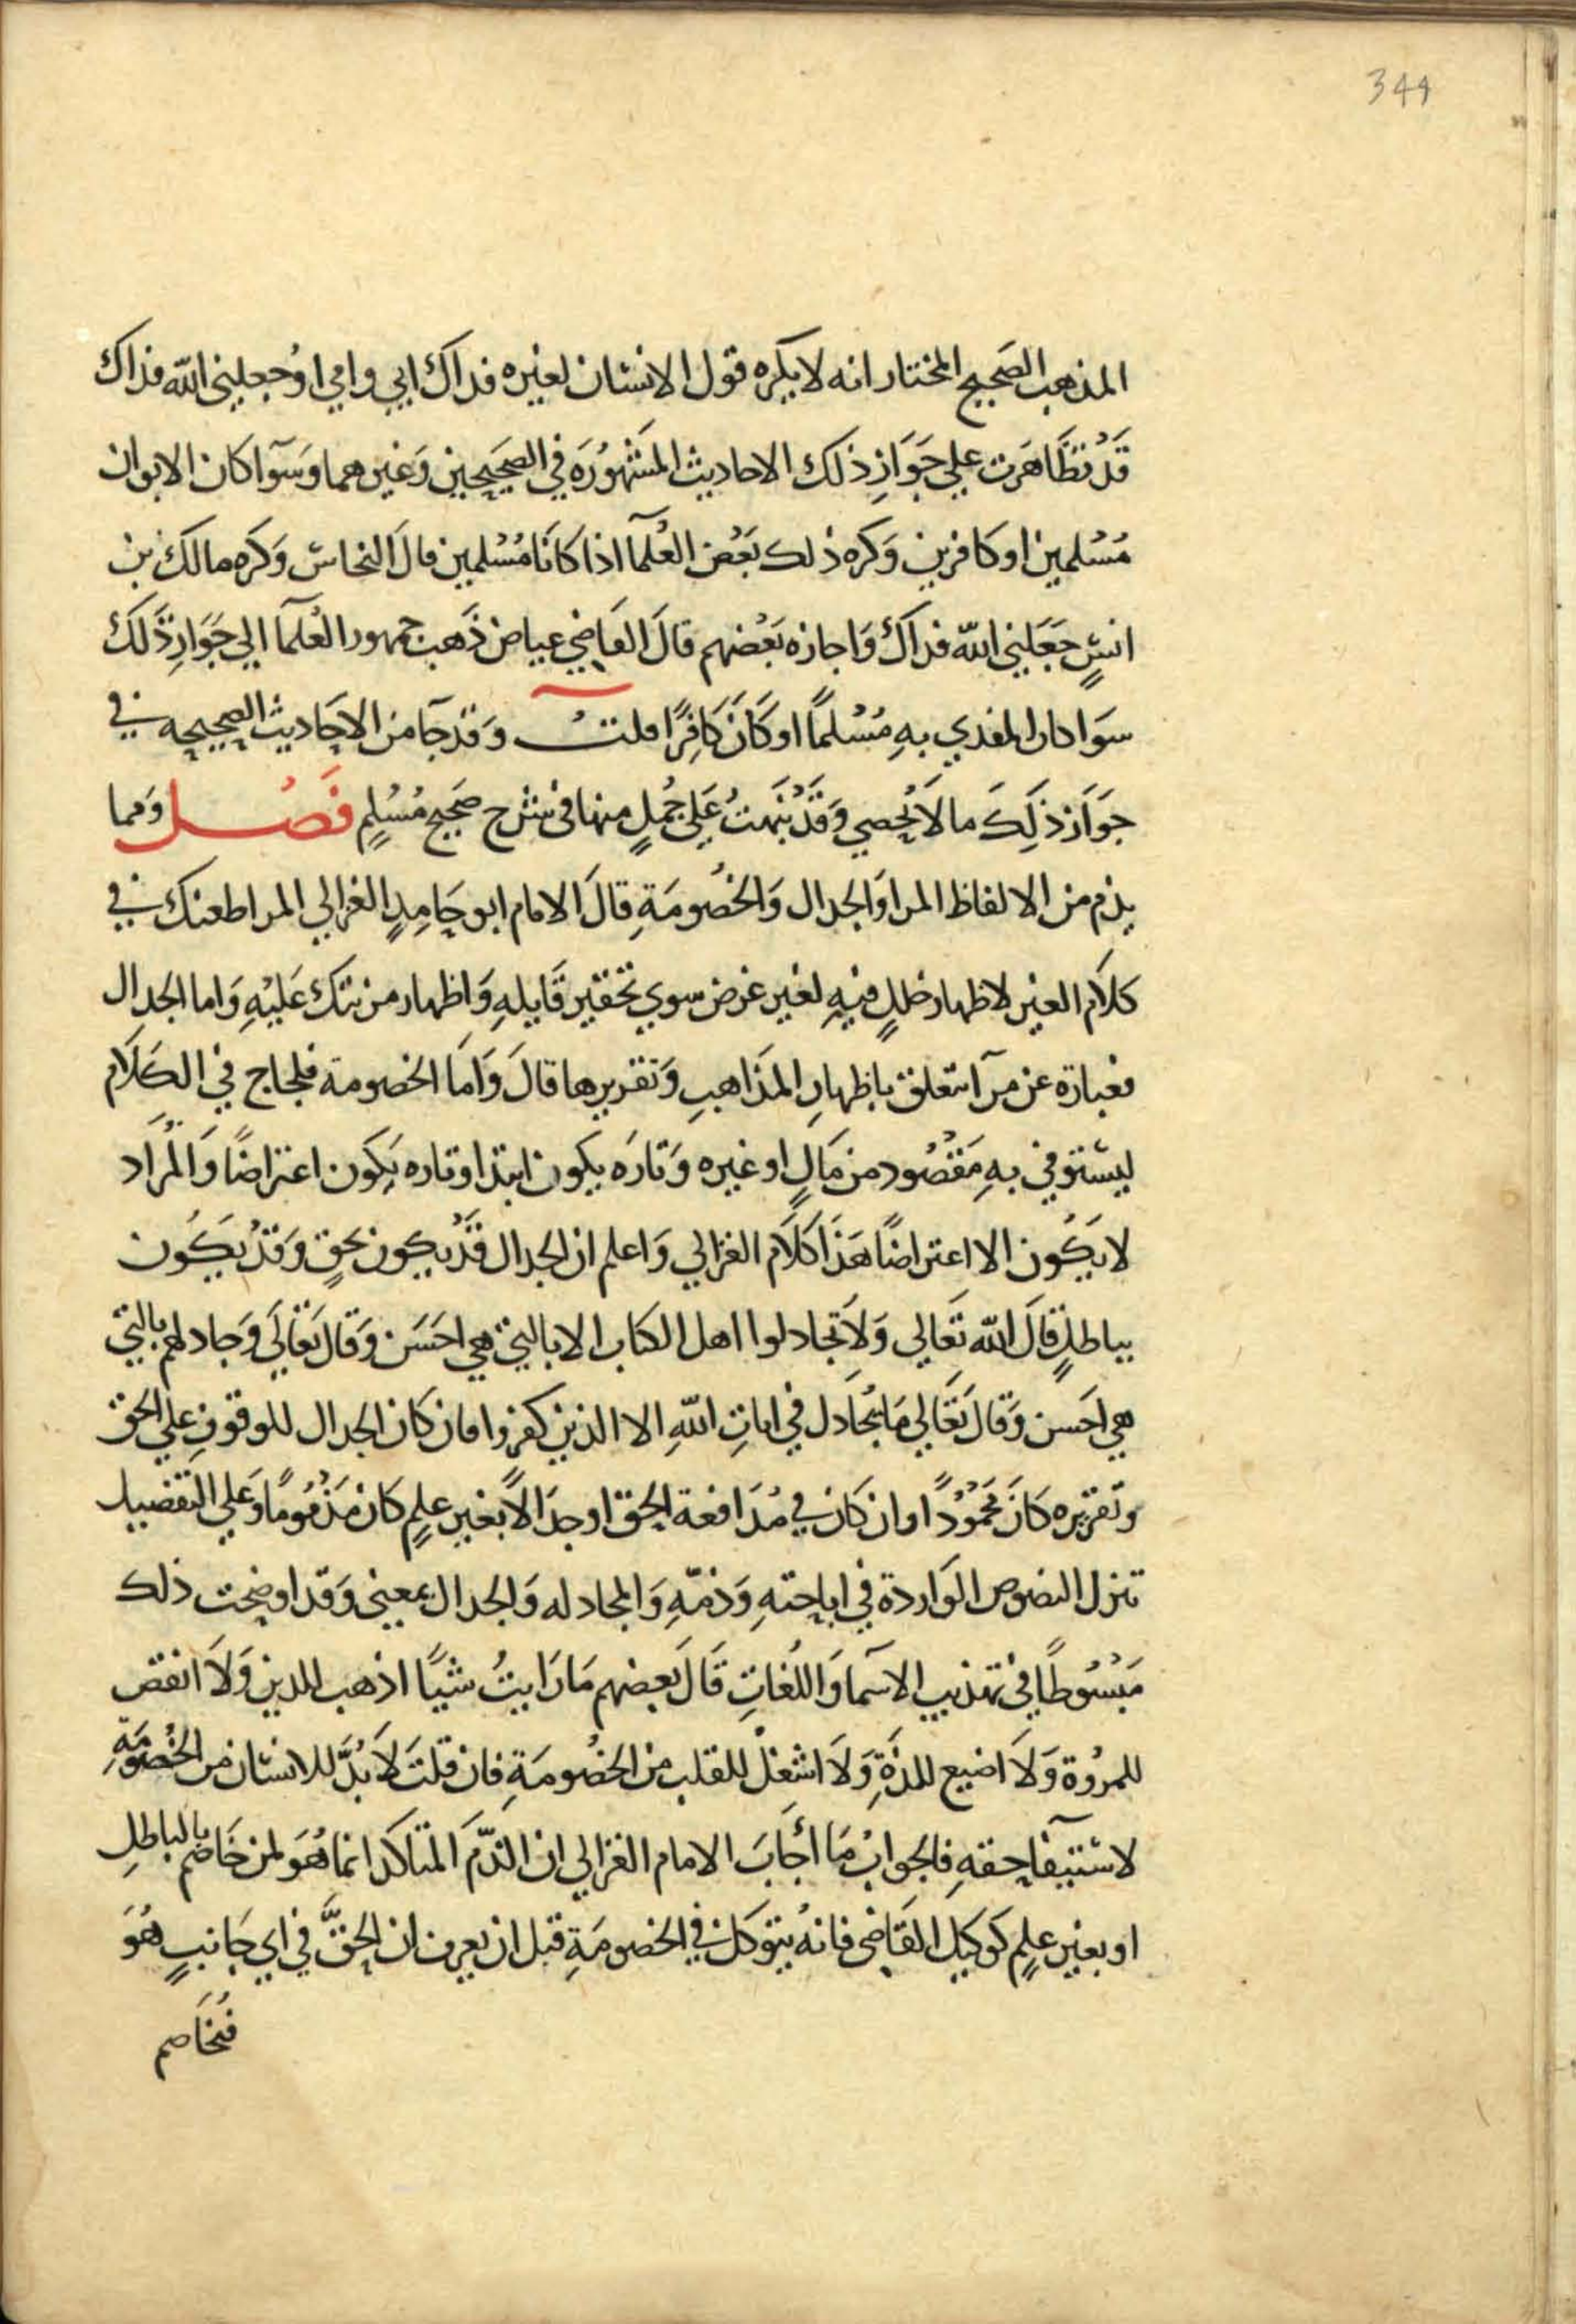 344
المذهب الصحيح المختار انه لا يكره قول الانسان لغيره فداك ابي وامي او جعلني الله فداك
قَدْ تظَاهَرت علي جَوَازِ ذلك الاحاديث المَشْهُورَه في الصَحيحين وَغيرهما وسَوآ كان الابوان
مُسْلمين او كافرين وَكره ذلك بَعْض العُلمآ اذا كانَا مُسْلمين قالَ النحاس وَكره مالك بن
انسٍ جَعَلني الله فداك وَاجازه بَعْضهم قالَ القَاضي عياض ذَهب جمهور العُلمآ الي جَوَازِ ذَلك
سَوا كان المفدي بهِ مُسْلماً او كَانَ كافِرًا قلتُ وَقَدْ جآ من الاحَاديث الصحيحه في
جَوَاز ذَلِكَ ما لاَ يُحصي وَقَدْ نَبَهتُ عَلي جُملٍ منها في شرح صَحيح مُسْلمٍ فَصْل وَمما
يذم من الالفاظ المرا وَالجدال وَالخصُومَةِ قالَ الامام ابو حَامِدٍ الغزالي المرا طعنك في
كلاَم الغير لاظهار خللٍ فيهِ لغير غرض سوي تحقير قَايلهِ وَاظهار مزيتك عَليْهِ وَاما الجدال
فعبارة عن مرآ يتعلق باظهارِ المذَاهبِ وَتقريرها قالَ وَامَا الخصومة فلجاج في الكلاَم
ليستوفي بهِ مَقْصُود من مَالٍ او غيره وَتارَه يكون ابتدا وتاره يَكون اعتراضًا وَالمُرَاد
لا يَكُون الا اعتراضًا هَذَا كَلاَم الغزالي وَاعلم ان الجدال قَدْ يكون بحَقٍ وَقَدْ يَكُون
بباطلٍ قالَ الله تَعَالي وَلاَ تجادلوا اهل الكتاب الا بالتي هي احَسَن وَقالَ تعَالَي وَجادلهم بالتي
هي احَسن وَقالَ تعَالي مَا يُجَادل في اياتِ اللهِ الا الذين كفروا فان كان الجدال للوقوفِ علي الحَق
وتقريره كَانَ مَحْمُوْدًا وان كان في مُدَافعة الحق او جدَالاً بغير علمٍ كان مَذْمُومًا وَعَلي التفصيل
تنزل النصوص الوَاردة في اباحتهِ وَذمّهِ وَالمجادله وَالجدال بمعني وَقد اوضحت ذلك
مَبْسُوطًا في تهذيب الاسمآ وَاللغَاتِ قَالَ بَعضهم مَا رَايتُ شيًا اذهب للدين وَلاَ انقص
للمرُوة وَلاَ اضيع للذَةِ وَلاَ اشغلْ للقلب من الخصُومَةِ فان قلتَ لاَ بُدَّ للانسان من الخصُومَةِ
لاستيفآ حقهِ فالجوابُ مَا أجَابَ الامام الغزالي ان الذّمَ المتاكد انما هُوَ لمن خَاصَم بالباطلِ
او بغير علمٍ كوكيل القَاضي فانهُ يتوَكل في الخصومَةِ قبل ان يعرف ان الحَقَّ في اي جَانبٍ هُوَ
فيُخَاصم